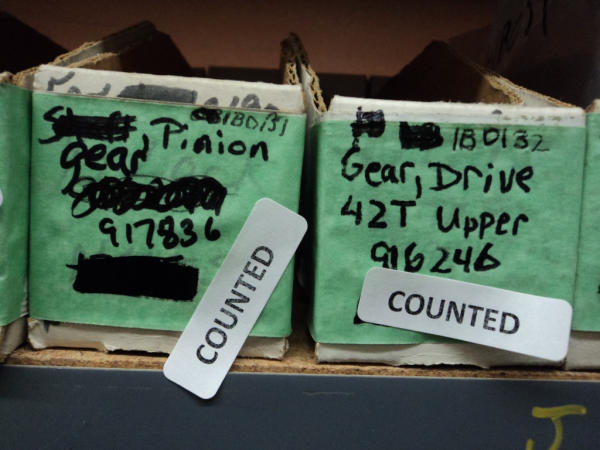 1B0131
Pinion
gear
917836
COUNTED
1B0132
Gear, Drive
42T Upper
916246
COUNTED
J